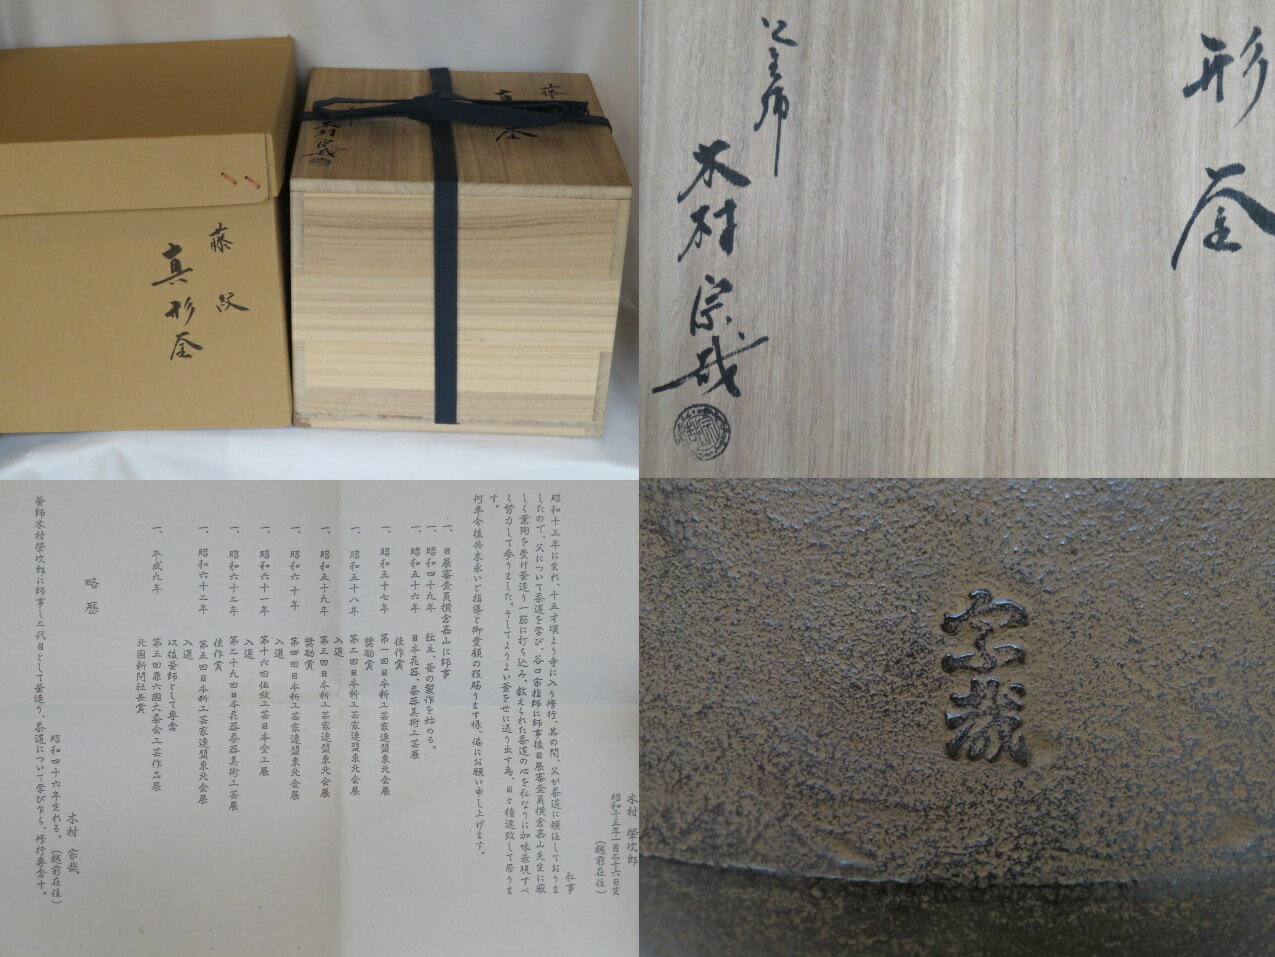 藤紋
真形釜
藤
真
釜
木村宗哉
形釜
釜師
木村宗哉
木村 榮次郎
昭和十三年一月二十六日生
(越前在住)
私事
昭和十三年に生れ、十五才頃より寺に入り修行、其の間、父が茶道に傾注しておりま
したので、父について茶道を学び、谷口宗指師に師事後日展審査員横倉嘉山先生に厳
しく薫陶を受け釜造り一筋に打ち込み、教えられた茶道の心を私なりに加味表現すべ
く努力して参りました。そしてよりよい釜を世に送り出す為、日々精進致して居りま
す。
何卒今後共末永いご指導と御愛顧の程賜ります様、偏にお願い申し上げます。
一、日展審査員横倉嘉山に師事
一、昭和四十九年 独立、釜の製作を始める。
一、昭和五十六年 日本花器、茶器美術工芸展
佳作賞
一、昭和五十七年 第一回日本新工芸家連盟東北会展
奨励賞
一、昭和五十八年 第二回日本新工芸家連盟東北会展
入選
一、昭和五十九年 第三回日本新工芸家連盟東北会展
奨励賞
一、昭和六十年 第四回日本新工芸家連盟東北会展
入選
一、昭和六十一年 第十六回伝統工芸日本金工展
入選
一、昭和六十二年 第二十九回日本花器茶器美術工芸展
佳作賞
一、昭和六十二年 第五回日本新工芸家連盟東北会展
入選
以後釜師として専念
一、平成九年 第三回兼六園大茶会工芸作品展
北国新聞社長賞
略歴
木村 宗哉
昭和四十六年生れる。(越前在住)
釜師木村榮次郎に師事し二代目として釜造り、茶道について学び乍ら、修行専念中。
宗哉